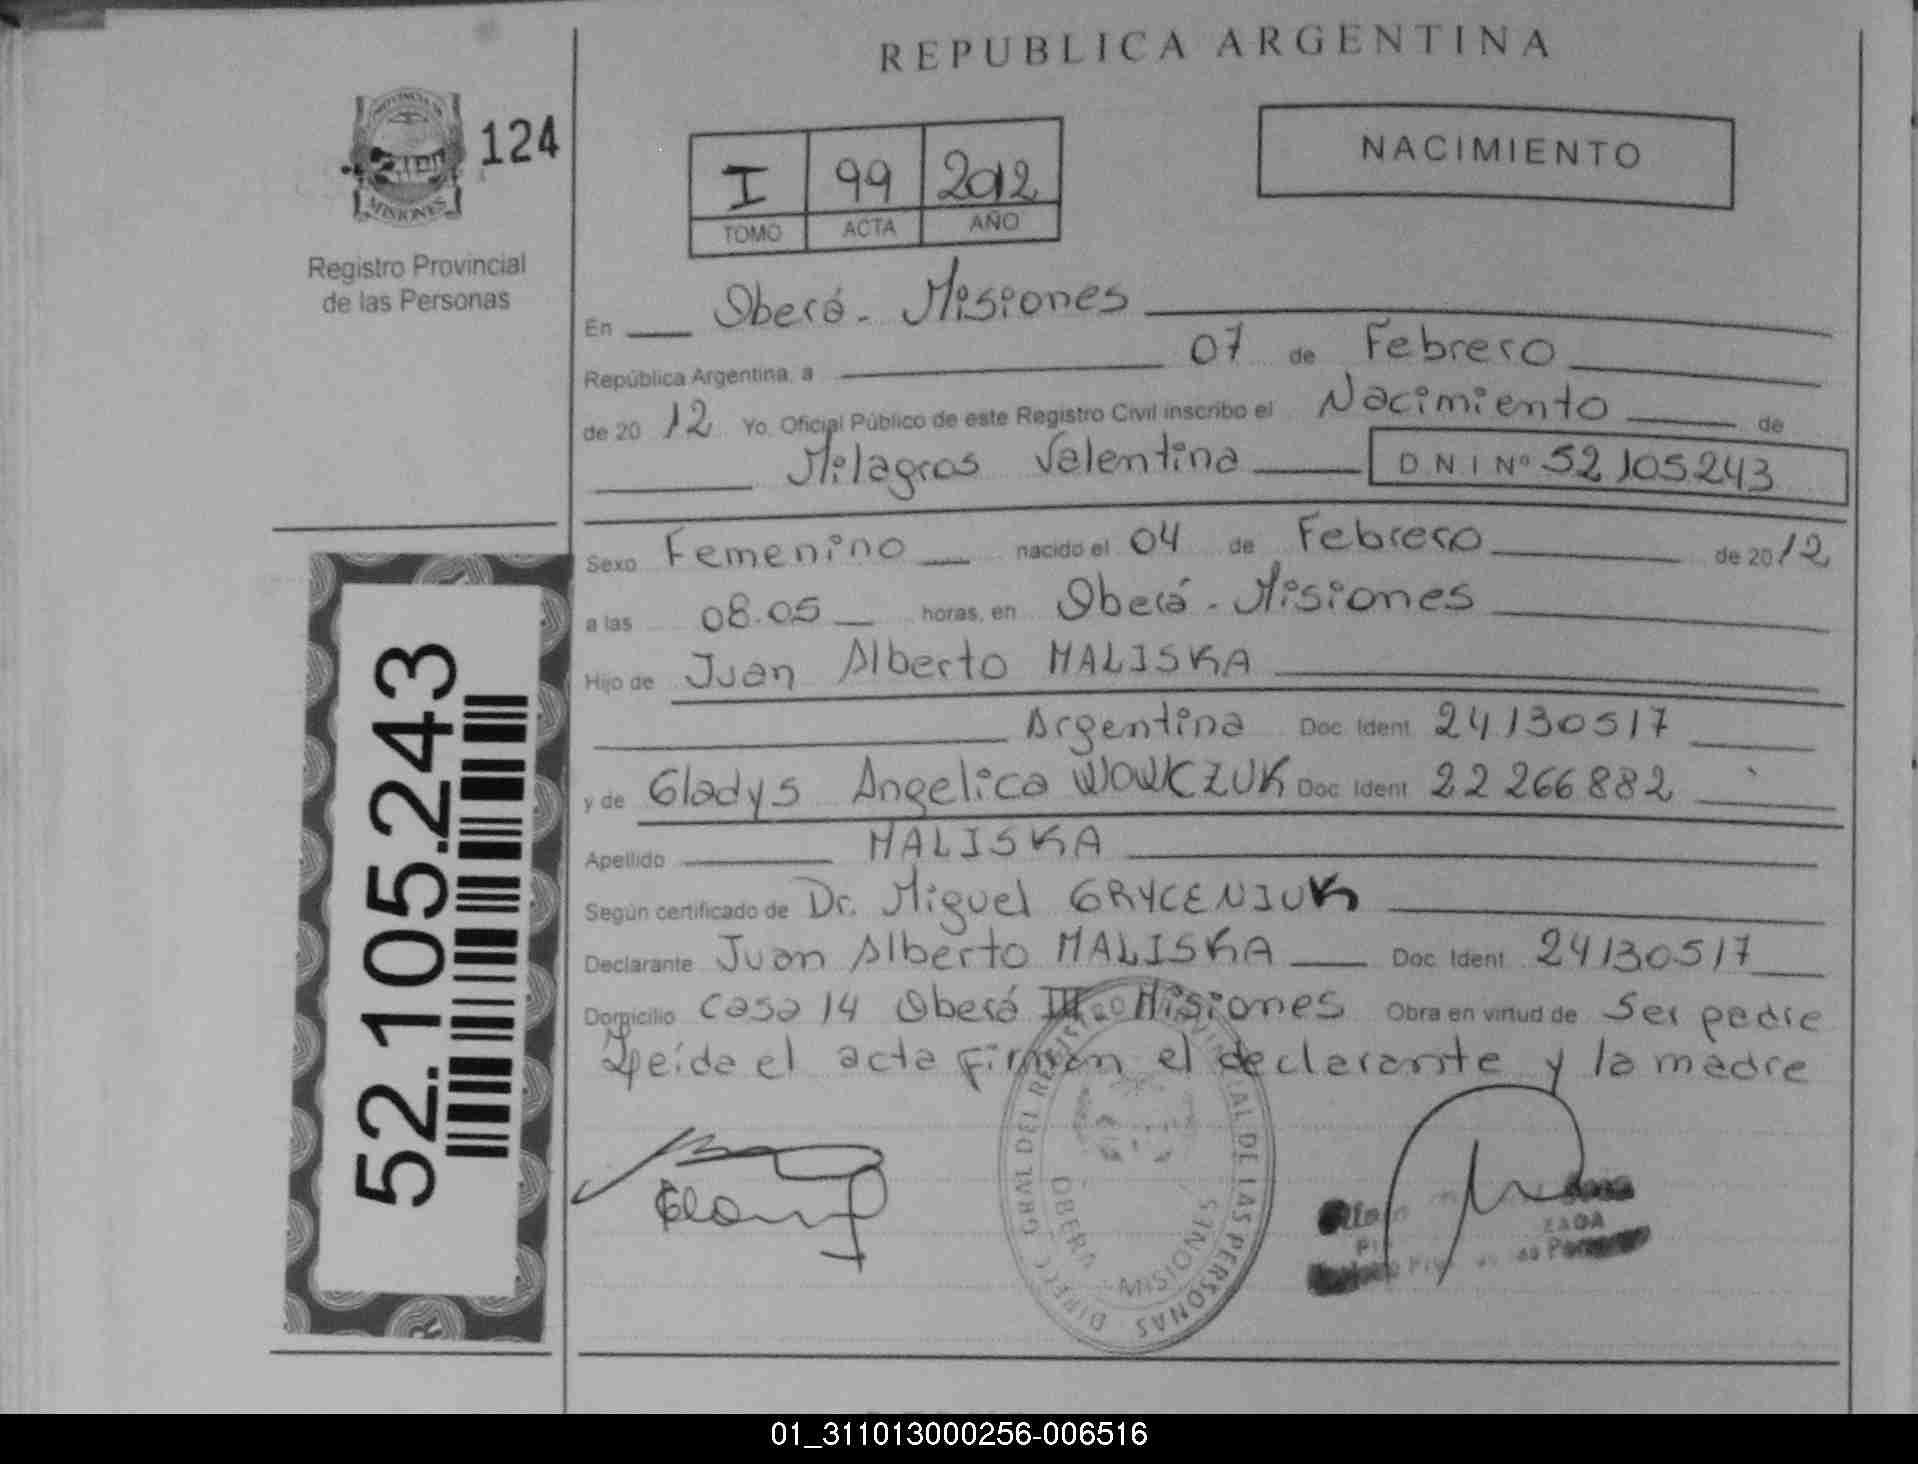 REPUBLICA ARGENTINA
PROVINCIA DE
MISIONES
124
Registro Provincial
de las Personas
I 99 2012
TOMO ACTA AÑO
NACIMIENTO
En Oberá - Misiones
República Argentina, a 07 de Febrero
de 20 12 Yo, Oficial Público de este Registro Civil inscribo el Nacimiento de
Milagros Valentina DNI Nº 52105243
Sexo Femenino nacido el 04 de Febrero de 20 12
a las 08.05 horas, en Oberá - Misiones
Hijo de Juan Alberto MALISKA
Argentina Doc. Ident. 24130517
y de Gladys Angelica WOWCZUK Doc. Ident. 22266882
Apellido MALISKA
Según certificado de Dr. Miguel GRYCENIUK
Declarante Juan Alberto MALISKA Doc. Ident. 24130517
Domicilio Casa 14 Oberá III Misiones Obra en virtud de Ser padre
Leída el acta firman el declarante y la madre
52.105.243
DIREC. GRAL DEL REGISTRO PROVINCIAL DE LAS PERSONAS
OBERA - MISIONES
01_311013000256-006516